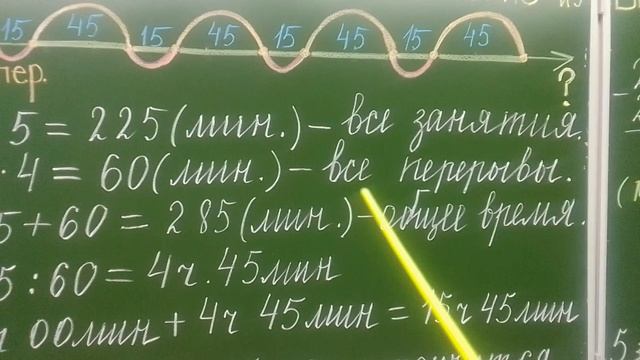 15 45 15 45 15 45 15 45
пер. ?
5 = 225 (мин.) – все занятия.
· 4 = 60 (мин.) – все перерывы.
5 + 60 = 285 (мин.) – общее время.
5 : 60 = 4 ч. 45 мин
00 мин + 4 ч 45 мин = 15 ч 45 мин